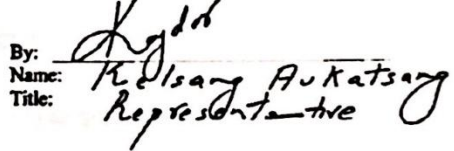 By:
Name: Kelsang Aukatsang
Title: Representative